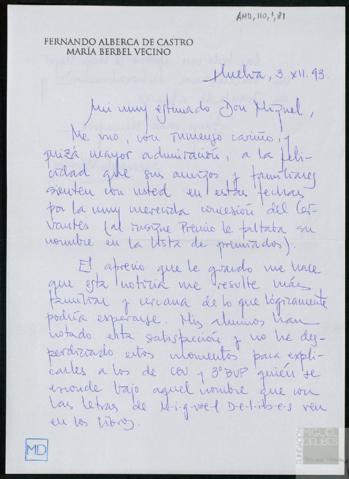 AMD, 110, 1, 81
FERNANDO ALBERCA DE CASTRO
MARÍA BERBEL VECINO
Huelva, 3.XII.93
Mi muy estimado Don Miguel,
Me uno, con inmenso cariño, y
quizá mayor admiración, a la feli-
cidad que sus amigos y familiares
sienten con usted en estas fechas
por la muy merecida concesión del Cer-
vantes (al insigne Premio le faltaba su
nombre en la lista de premiados).
El aprecio que le guardo me hace
que esta noticia me resulte más
familiar y cercana de lo que lógicamente
podría esperarse. Mis alumnos han
notado esta satisfacción, y no he des-
perdiciado estos momentos para expli-
carles a los de COU y 3º BUP quién se
esconde bajo aquel nombre que con
las letras de M-i-g-u-e-l D-e-l-i-b-e-s ven
en los libros.
MD
FUNDACIÓN
MIGUEL
DELIBES